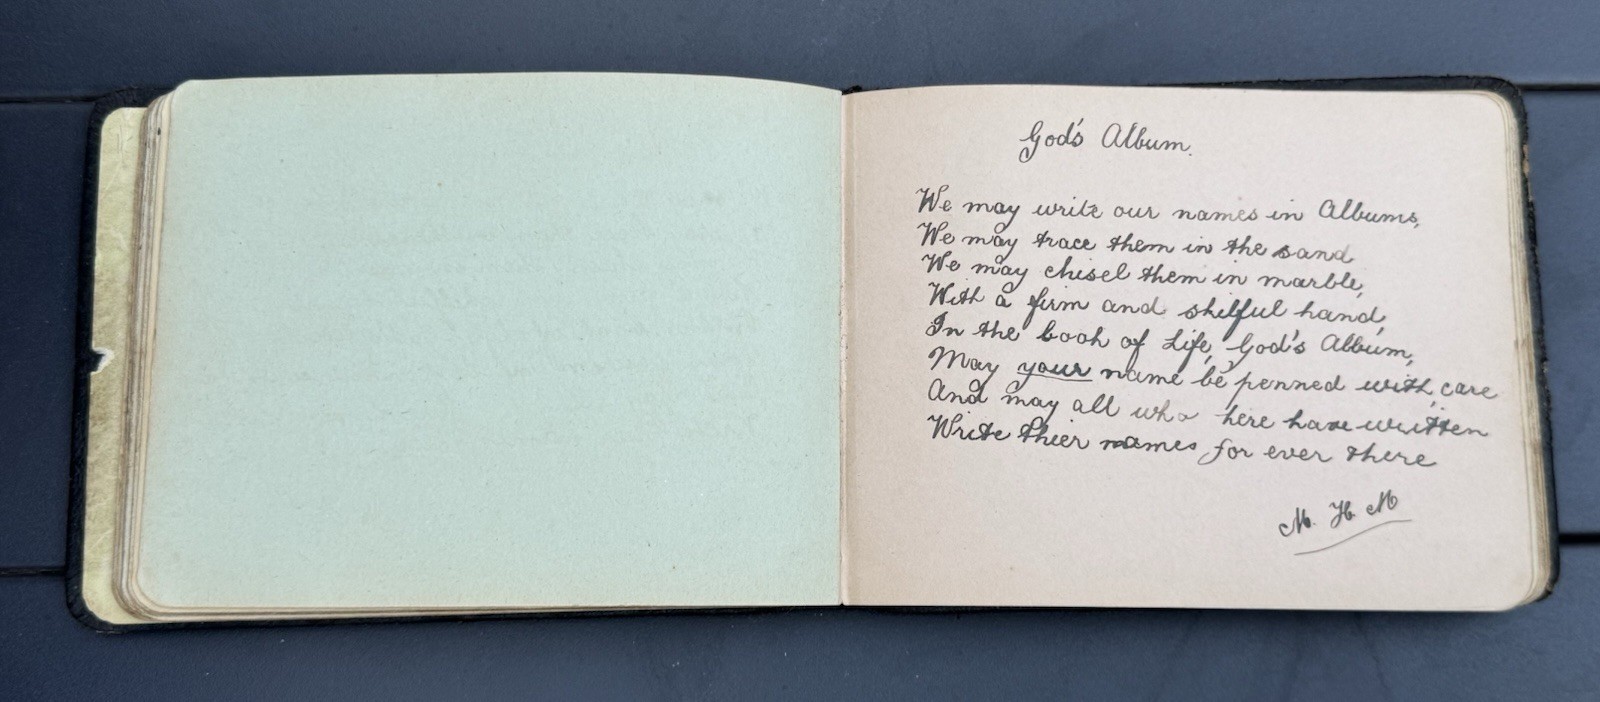 God's Album.
We may write our names in Albums,
We may trace them in the sand
We may chisel them in marble,
With a firm and skilful hand,
In the book of Life, God's Album,
May your name be penned with care
And may all who here have written
Write thier names for ever there
M. H. M